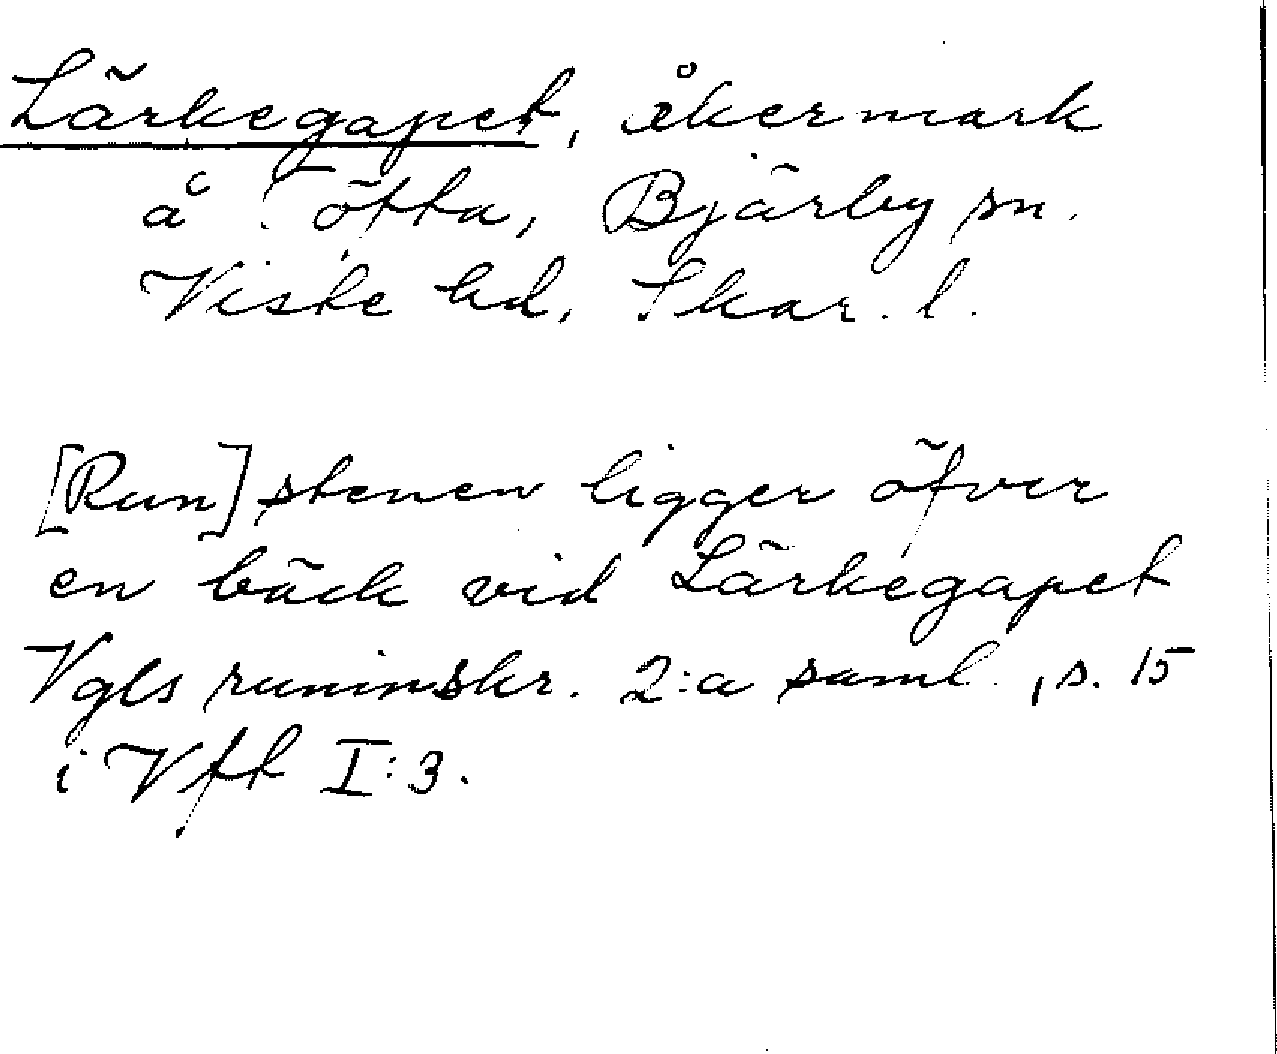 Lärkegapet, åkermark
å Tötta, Bjärby sn.
Viste hd, Skar. l.
[Run]stenen ligger öfver
en bäck vid Lärkegapet
Vgls runinskr. 2:a saml., s. 15
i Vft I:3.